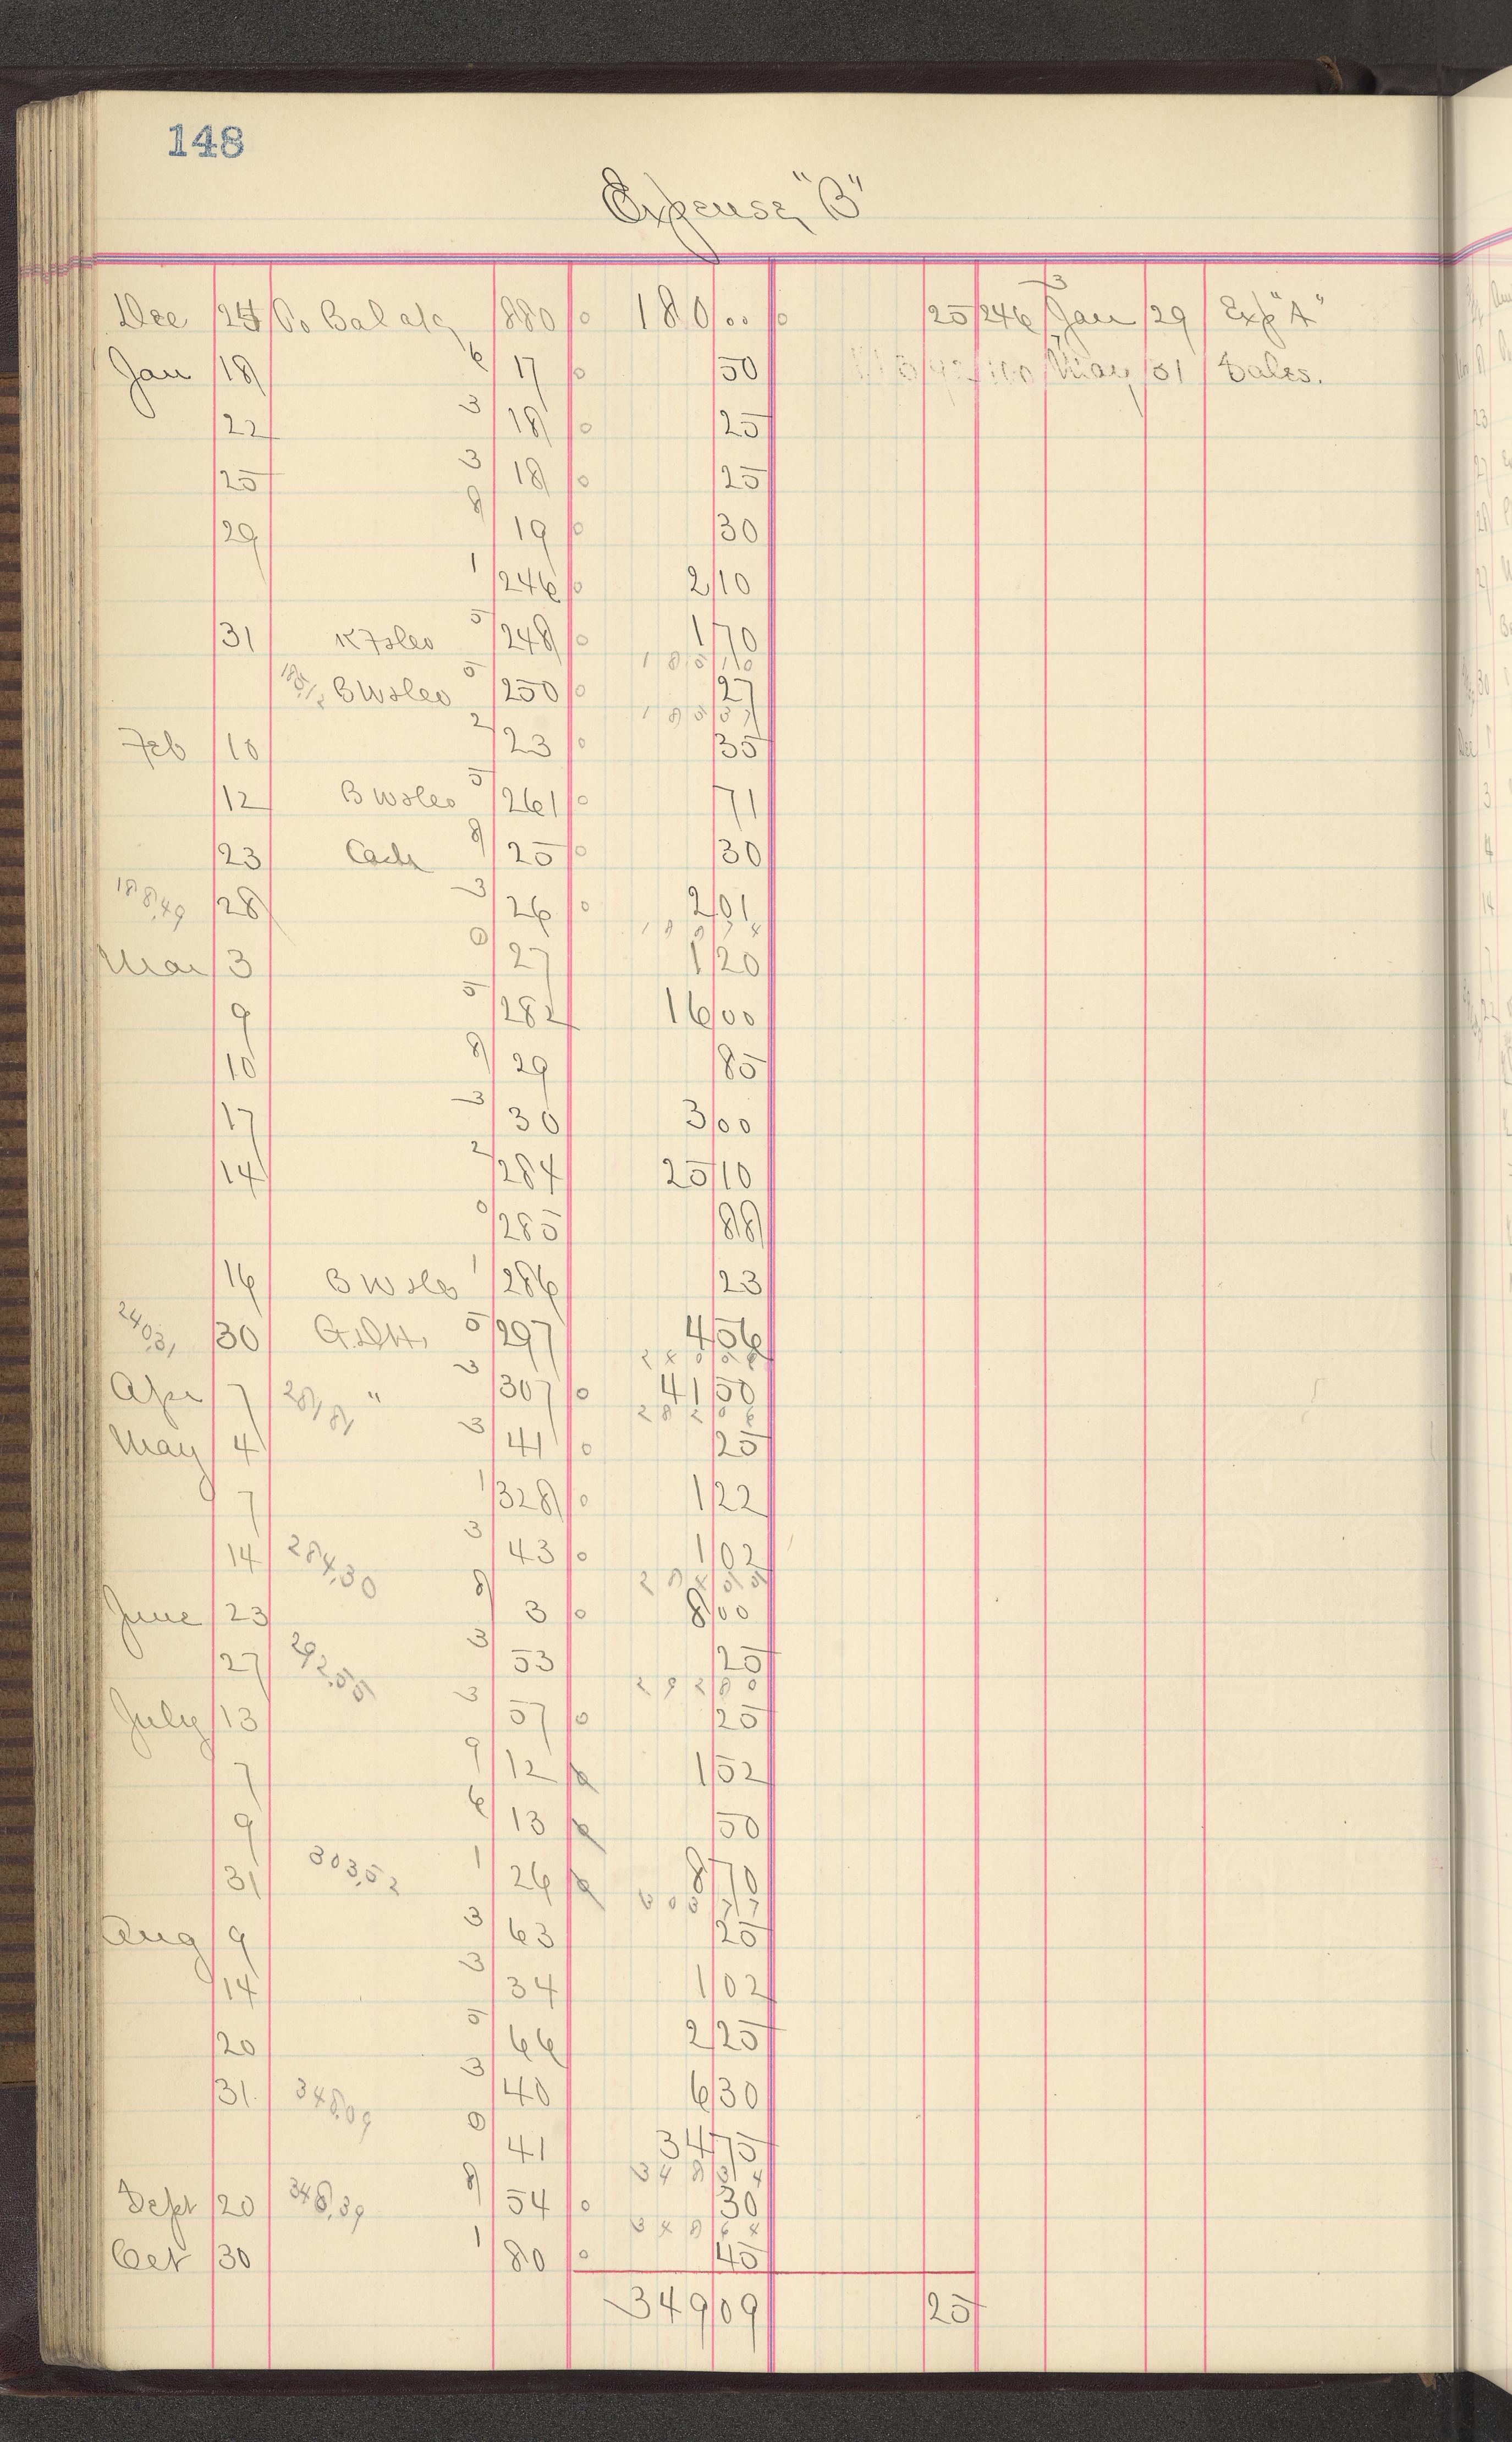 148
Expense "B"
Dec 24 To Bal a/c 880 0 180 .. 0 25 246 3 Jan 29 Exp "A"
Jan 18 6 17 0 50 100 May 31 Sales.
22 3 18 0 25
25 3 18 0 25
29 8 19 0 30
1 246 0 2 10
31 5 248 0 1 70
185 10
5 250 0 27
185 37
Feb 10 2 23 0 35
12 5 261 0 71
23 Cash 8 25 0 30
188.49 28 3 26 0 2 01
Mar 3 0 27 1 20
9 5 282 16 00
10 8 29 85
17 3 30 3 00
14 2 284 25 10
0 285 88
16 1 286 23
240.31 30 G.D.H. 5 297 4 56
Apr 7 281 81 " 3 307 0 41 50
282 06
May 4 3 41 0 25
7 1 328 0 1 22
14 284.30 3 43 0 1 02
284 55
June 23 8 3 0 8 00
27 292.55 3 53 25
292 80
July 13 3 57 0 25
7 9 12 0 1 52
9 6 13 0 50
31 303.52 1 26 0 8 70
303 77
Aug 9 3 63 25
14 3 34 1 02
20 5 66 2 25
31 348.09 3 40 6 30
0 41 34 75
348 34
Sept 20 348.39 8 54 0 30
348 64
Oct 30 1 80 0 45
349 09 25